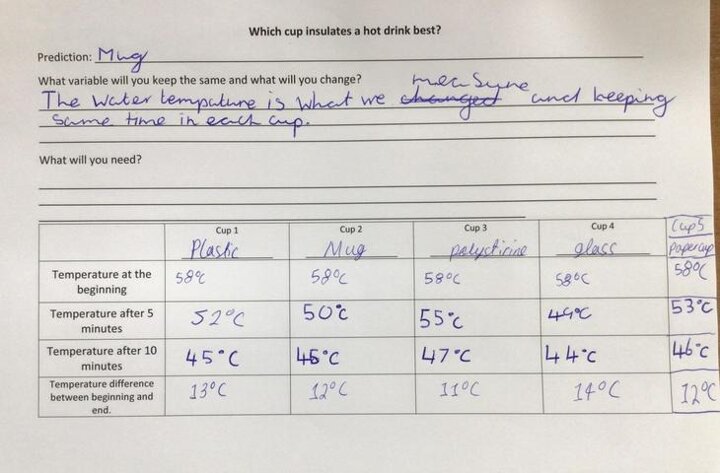 Which cup insulates a hot drink best?
Prediction: Mug
What variable will you keep the same and what will you change?
measure
The water tempature is what we changed and keeping
same time in each cup.
What will you need?
Cup 1 Cup 2 Cup 3 Cup 4 Cup 5
Plastic Mug polystirine glass papercup
Temperature at the beginning 58°C 58°C 58°C 58°C 58°C
Temperature after 5 minutes 52°C 50°C 55°C 49°C 53°C
Temperature after 10 minutes 45°C 46°C 47°C 44°C 46°C
Temperature difference between beginning and end. 13°C 12°C 11°C 14°C 12°C